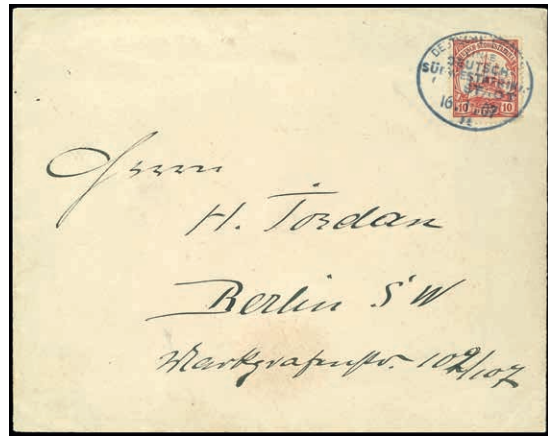 DEUTSCH
SÜDWESTAFRIKA
10 10
Herrn
H. Jordan
Berlin S W
Markgrafenstr. 102/107